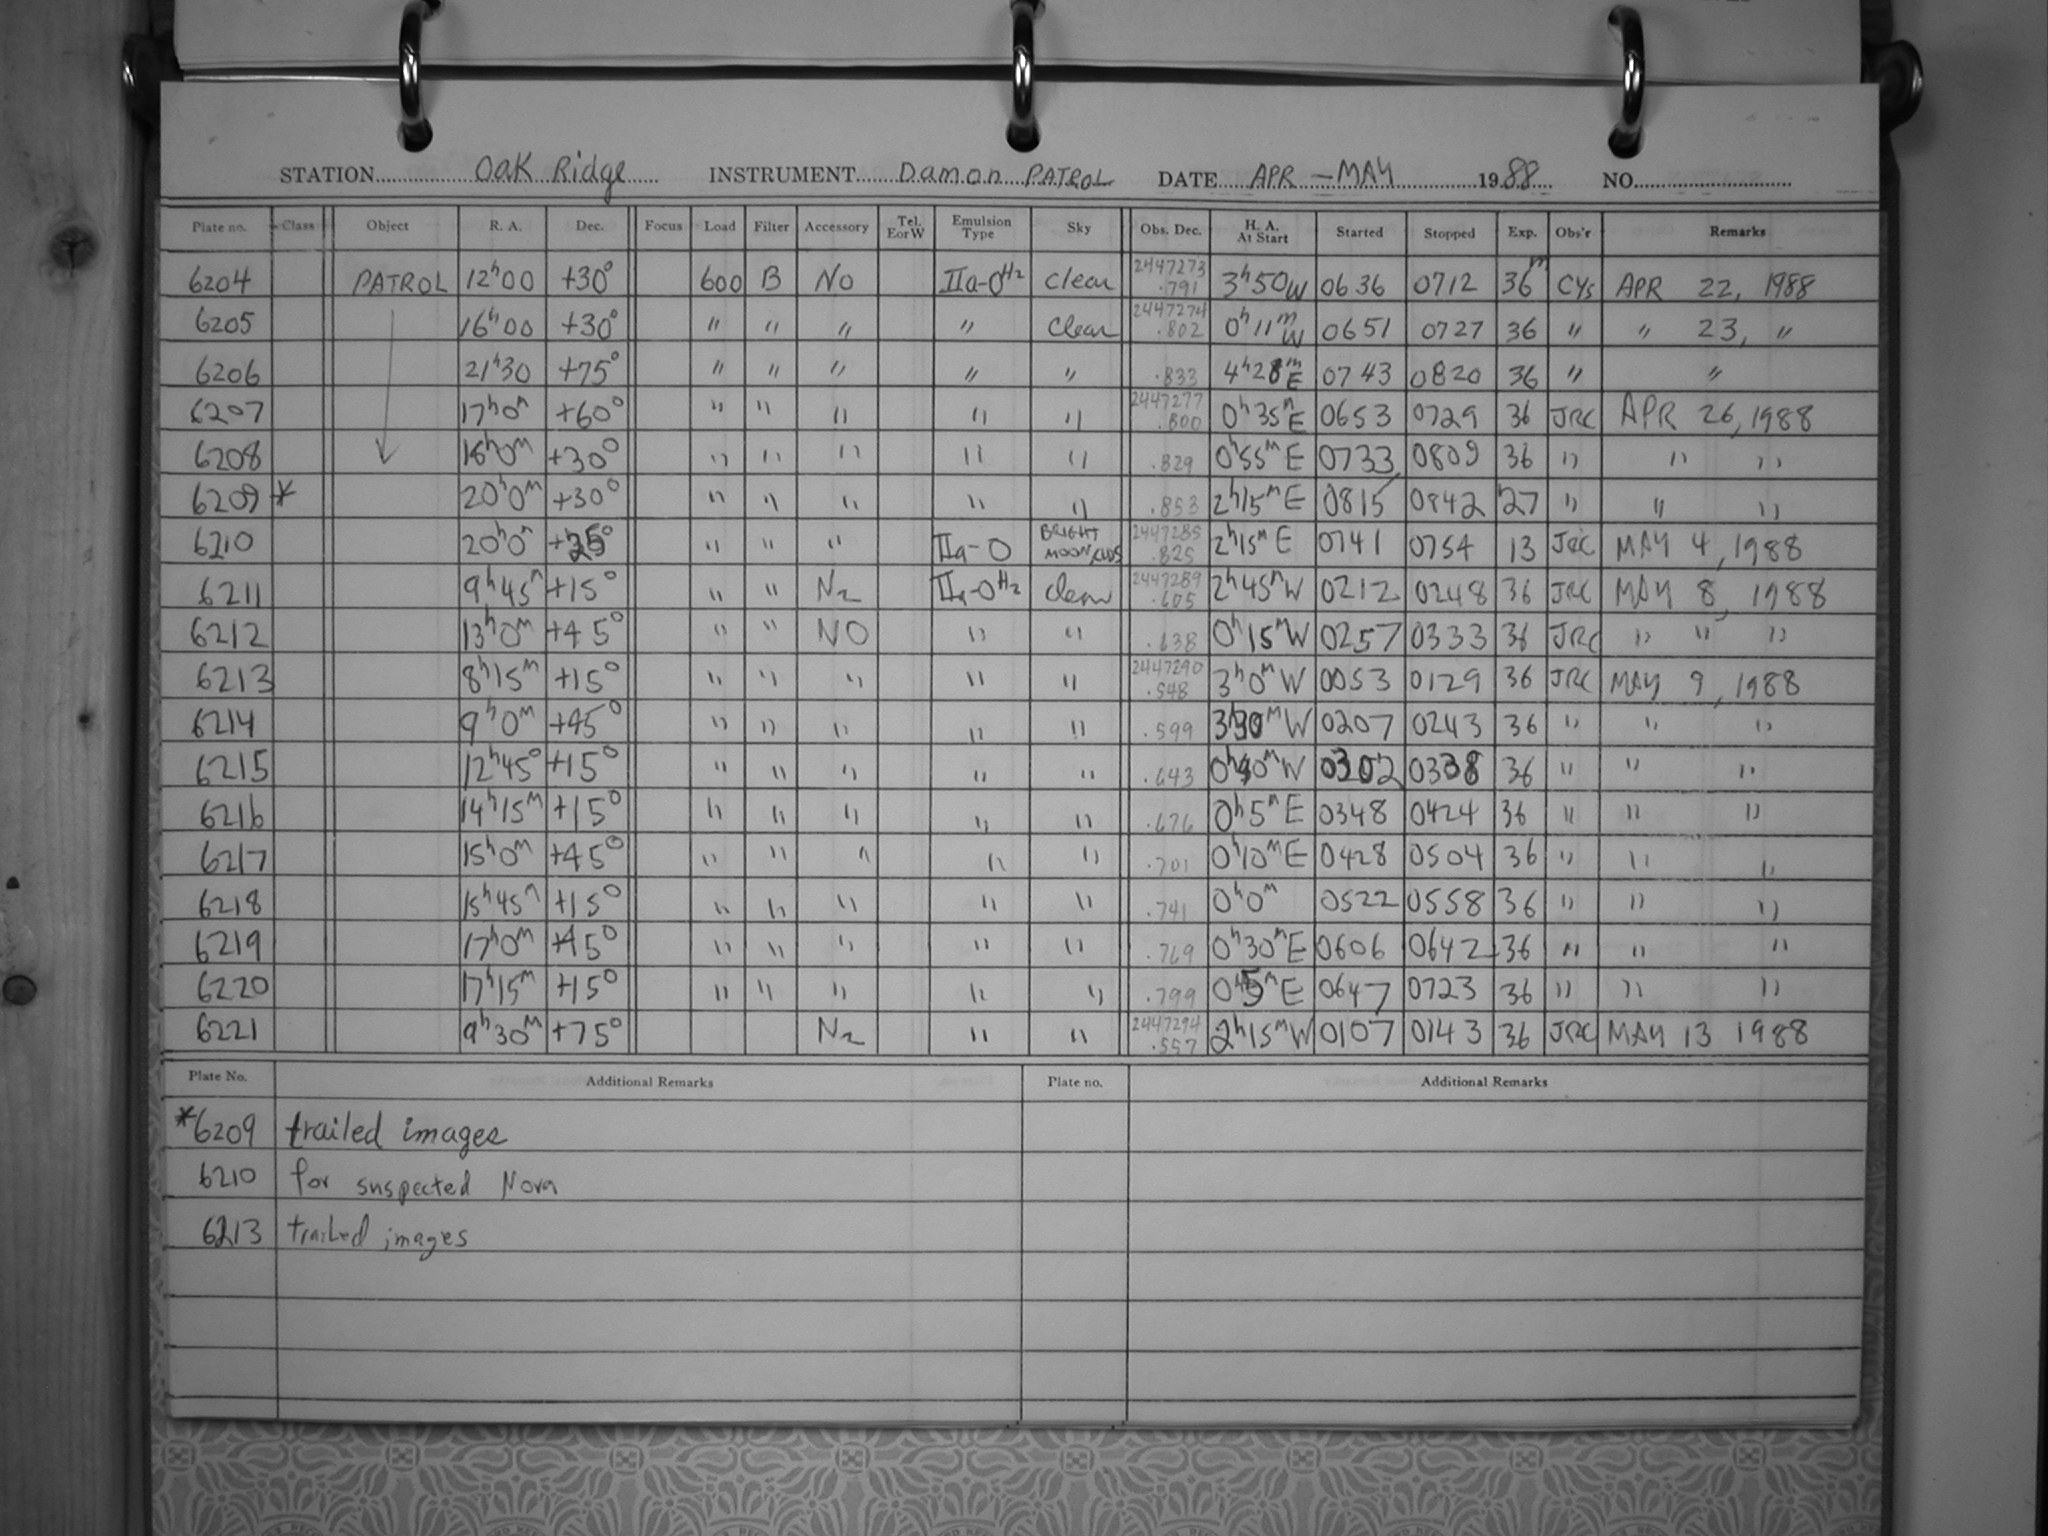 STATION Oak Ridge INSTRUMENT Damon PATROL DATE APR - MAY 1988 NO.
Plate no. Class Object R. A. Dec. Focus Load Filter Accessory Tel. E or W Emulsion Type Sky Obs. Dec. H. A. At Start Started Stopped Exp. Obs'r Remarks
6204 PATROL 12h00 +30° 600 B NO IIa-OH2 clear 2447273 .791 3h50W 0636 0712 36m CYs APR 22, 1988
6205 16h00 +30° " " " " Clear 2447274 .802 0h11m W 0651 0727 36 " " 23, "
6206 21h30 +75° " " " " " .833 4h28m E 0743 0820 36 " "
6207 17h0m +60° " " " " " 2447277 .800 0h35m E 0653 0729 36 JRC APR 26, 1988
6208 18h0m +30° " " " " " .829 0h55m E 0733 0809 36 " " "
6209 * 20h0m +30° " " " " " .853 2h15m E 0815 0842 27 " " "
6210 20h0m " " " IIa-O BRIGHT MOON, CLDS 2447285 .825 2h15m E 0741 0754 13 JRC MAY 4, 1988
6211 9h45m +15° " " N2 IIa-OH2 clear 2447289 .605 2h45m W 0212 0248 36 JRC MAY 8, 1988
6212 13h0m +45° " " NO " " .638 0h15m W 0257 0333 36 JRC " " "
6213 8h15m +15° " " " " " 2447290 .548 3h0m W 0053 0129 36 JRC MAY 9, 1988
6214 9h0m +45° " " " " " .599 3h30m W 0207 0243 36 " " "
6215 12h45° +15° " " " " " .643 0h40m W 0302 0338 36 " " "
6216 14h15m +15° " " " " " .676 0h5m E 0348 0424 36 " " "
6217 15h0m +45° " " " " " .701 0h10m E 0428 0504 36 " " "
6218 15h45m +15° " " " " " .741 0h0m 0522 0558 36 " " "
6219 17h0m +45° " " " " " .769 0h30m E 0606 0642 36 " " "
6220 17h15m +15° " " " " " .799 0647 0723 36 " " "
6221 9h30m +75° N2 " " 2447294 .557 2h15m W 0107 0143 36 JRC MAY 13 1988
Plate No. Additional Remarks Plate no. Additional Remarks
*6209 trailed images
6210 for suspected Nova
6213 trailed images